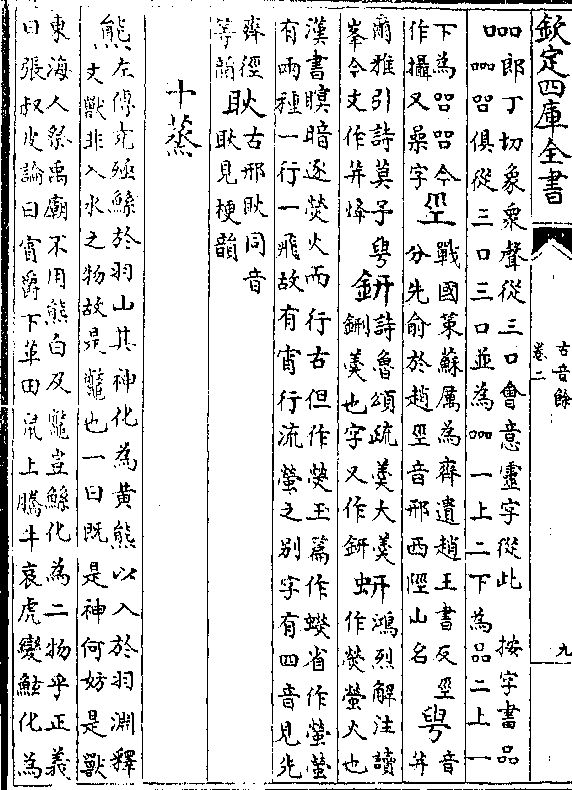 欽定四庫全書
古音餘
卷二
九
郎丁切象衆聲從三口會意靈字從此　按字書品
俱從三口三口並為𠱠一上二下為品二上一
下為今
作攝又喿字
巠
戰國策蘇厲為齊遺趙王書反巠
分先俞於趙巠音邢西陘山名
甹
音
荓
爾雅引詩莫予甹
峯今文作荓烽
鈃
詩魯頌疏羹大羹
鉶羹也字又作鈃
蚈
鴻烈解注讀
作熒螢火也
漢書瞑暗逐熒火而行古但作熒玉篇作蠑省作螢螢
有兩種一行一飛故有宵行流螢之别字有四音見先
齊徑
等韻
耿
古邢耿同音
耿見梗韻
十蒸
熊
左傳堯殛鯀於羽山其神化為黄熊以入於羽淵釋
文獸非入水之物故是鼈也一曰既是神何妨是獸
東海人祭禹廟不用熊白及鼈豈鯀化為二物乎正義
曰張叔皮論曰賓爵下革田鼠上騰牛哀虎變鯀化為